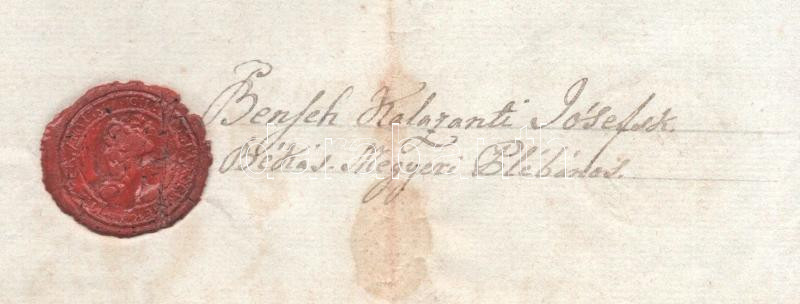 Bensch Kalazanti Jósefsk.
Békás-Megyeri Plébános.